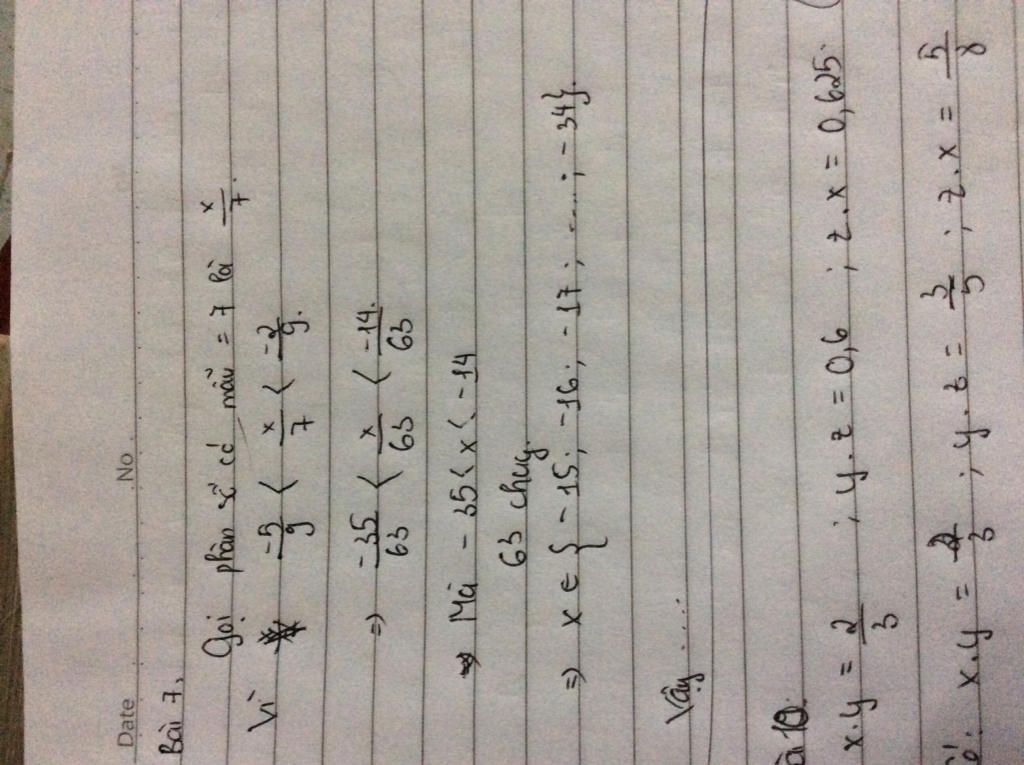 Date No
Bài 7.
Gọi phân số có mẫu = 7 là x/7.
Vì -5/9 < x/7 < -2/9.
=> -35/63 < x/63 < -14/63.
Mà -35 < x < -14
63 chug.
=> x ∈ {-15; -16; -17; ....; -34}.
Vậy .....
ài 10.
x.y = 2/3 ; y.z = 0,6 ; z.x = 0,625.
x.y = 2/3 ; y.z = 3/5 ; z.x = 5/8